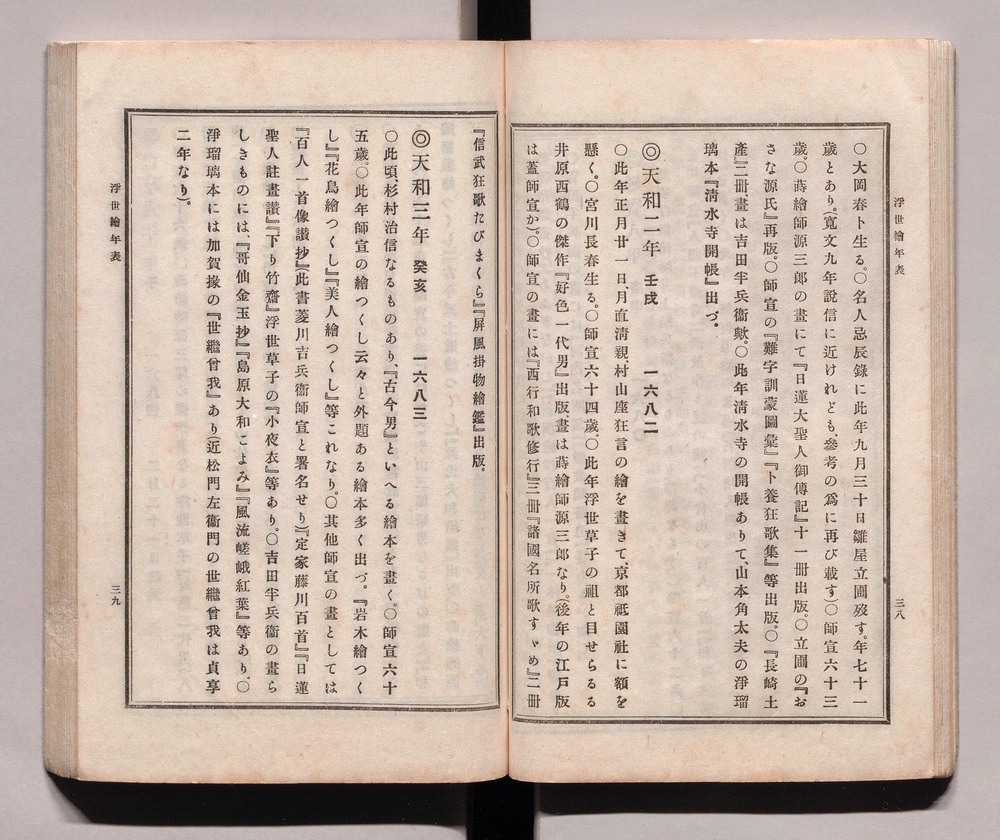 浮世繪年表
三八
〇大岡春卜生る。〇名人忌辰錄に此年九月三十日雛屋立圃歿す。年七十一
歲とあり。(寬文九年說信に近けれども、參考の爲に再び載す)〇師宣六十三
歲。〇蒔繪師源三郎の畫にて『日蓮大聖人御傳記』十一冊出版。〇立圃の『お
さな源氏』再版。〇師宣の『難字訓蒙圖彙』『卜養狂歌集』等出版。〇『長崎土
產』二冊、畫は吉田半兵衞歟。〇此年淸水寺の開帳ありて、山本角太夫の淨瑠
璃本『淸水寺開帳』出づ。
◎天和二年 壬戌 一六八二
〇此年正月廿一日、月直淸親村山座狂言の繪を畫きて、京都祇園社に額を
懸く。〇宮川長春生る。〇師宣六十四歲。〇此年浮世草子の祖と目せらるる
井原西鶴の傑作『好色一代男』出版畫は蒔繪師源三郎なり。(後年の江戶版
は蓋師宣か)。〇師宣の畫には『西行和歌修行』三冊『諸國名所歌すゞめ』二冊
『信武狂歌たびまくら』『屛風掛物繪鑑』出版。
◎天和三年 癸亥 一六八三
〇此頃、杉村治信なるものあり、『古今男』といへる繪本を畫く。〇師宣六十
五歲。〇此年師宣の繪つくし云々と外題ある繪本多く出づ。『岩木繪つく
し』『花鳥繪つくし』『美人繪つくし』等これなり。〇其他師宣の畫としては
『百人一首像讃抄』(此書菱川吉兵衞師宣と署名せり)『定家藤川百首』『日蓮
聖人註畫讃』『下り竹齋』浮世草子の『小夜衣』等あり。〇吉田半兵衞の畫ら
しきものには、『哥仙金玉抄』『島原大和こよみ』『風流嵯峨紅葉』等あり。〇
淨瑠璃本には加賀掾の『世繼曾我』あり(近松門左衞門の世繼曾我は貞享
二年なり)。
浮世繪年表
三九